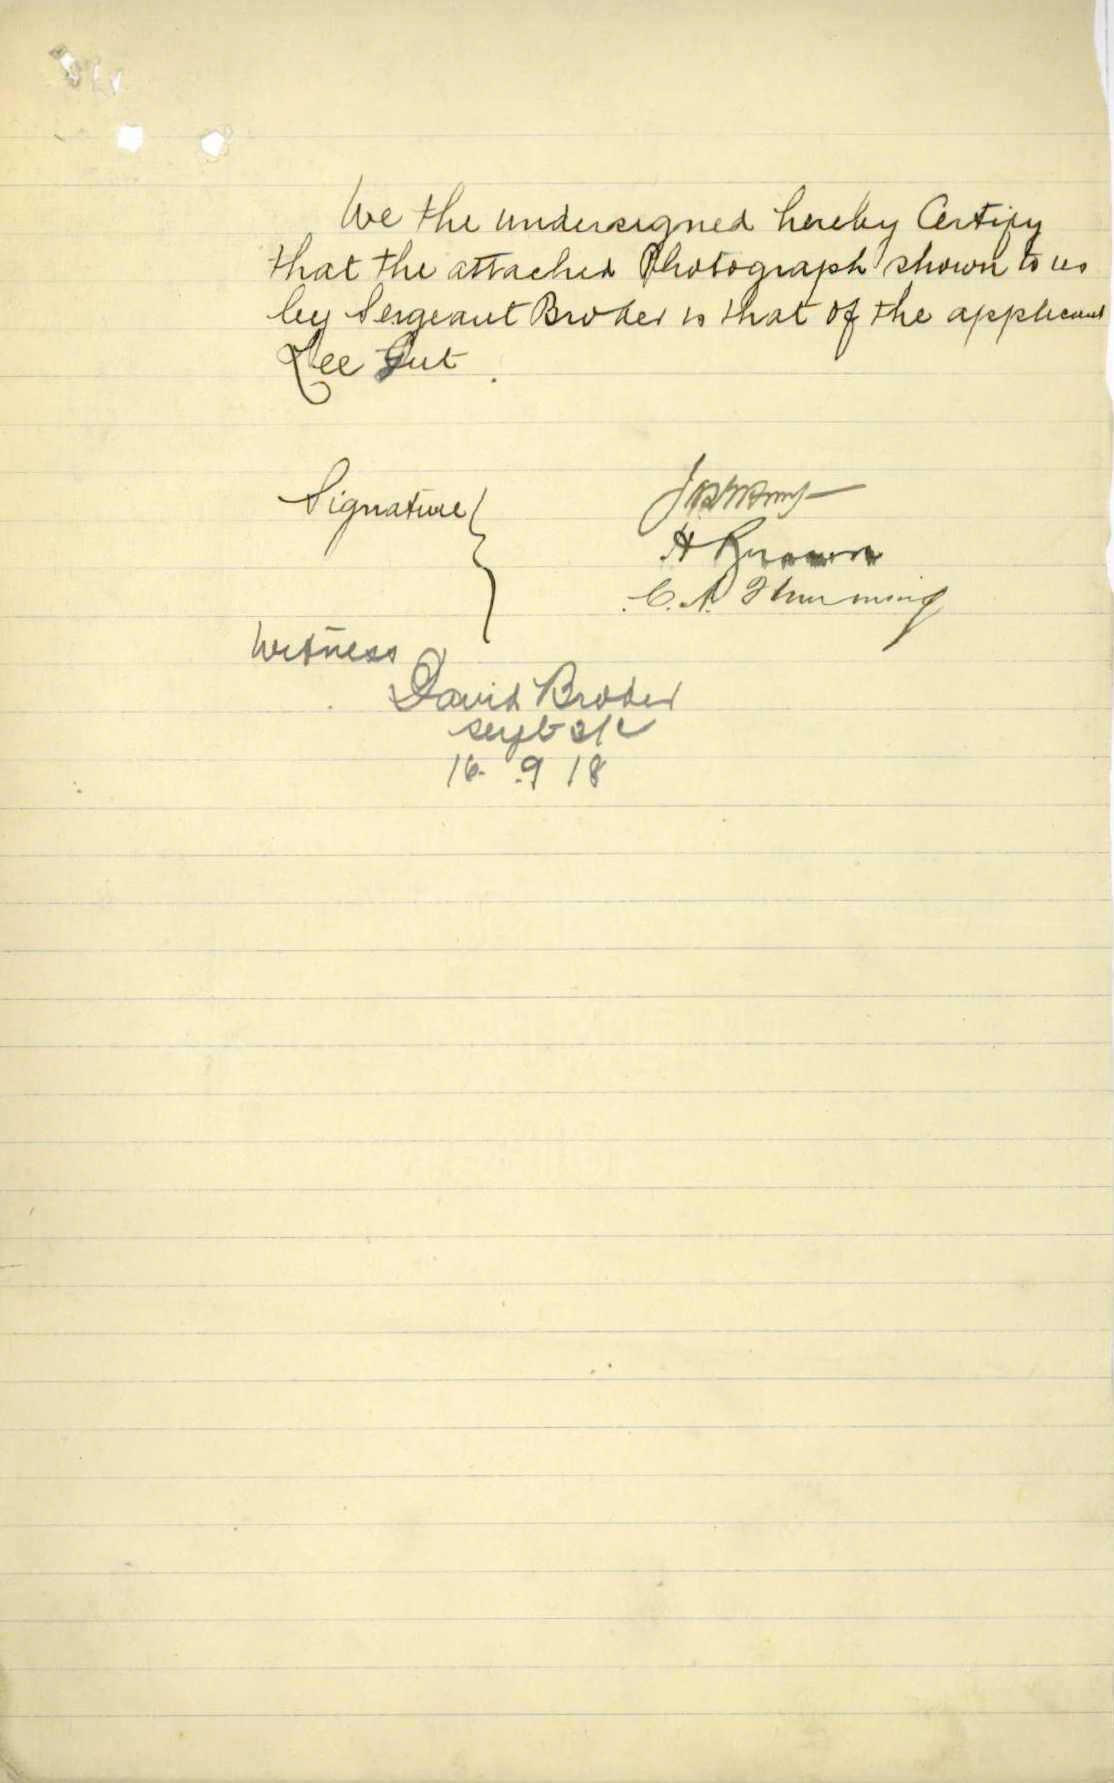 We the undersigned hereby Certify
that the attached Photograph shown to us
by Sergeant Broder is that of the applicant
Lee Gut.
Signature
H Brown
C. A. Flemming
Witness
David Broder
Sergt 2/c
16. 9 18